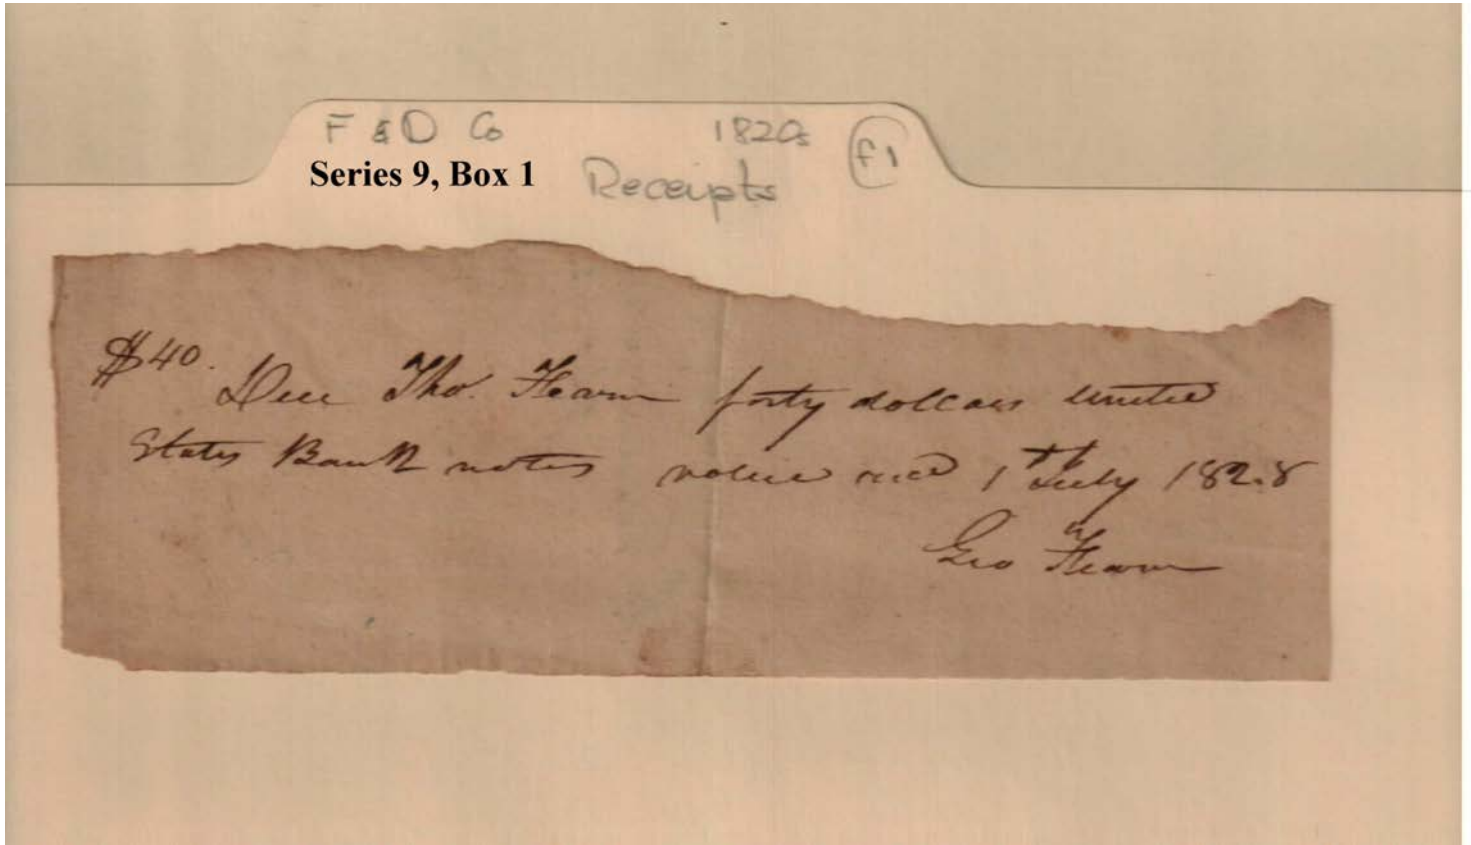 F & D Co 1820s f1
Series 9, Box 1 Receipts
$40.
Due Tho. Fearn forty dollars united
States Bank notes value recd 1st July 1828
Geo Fearn